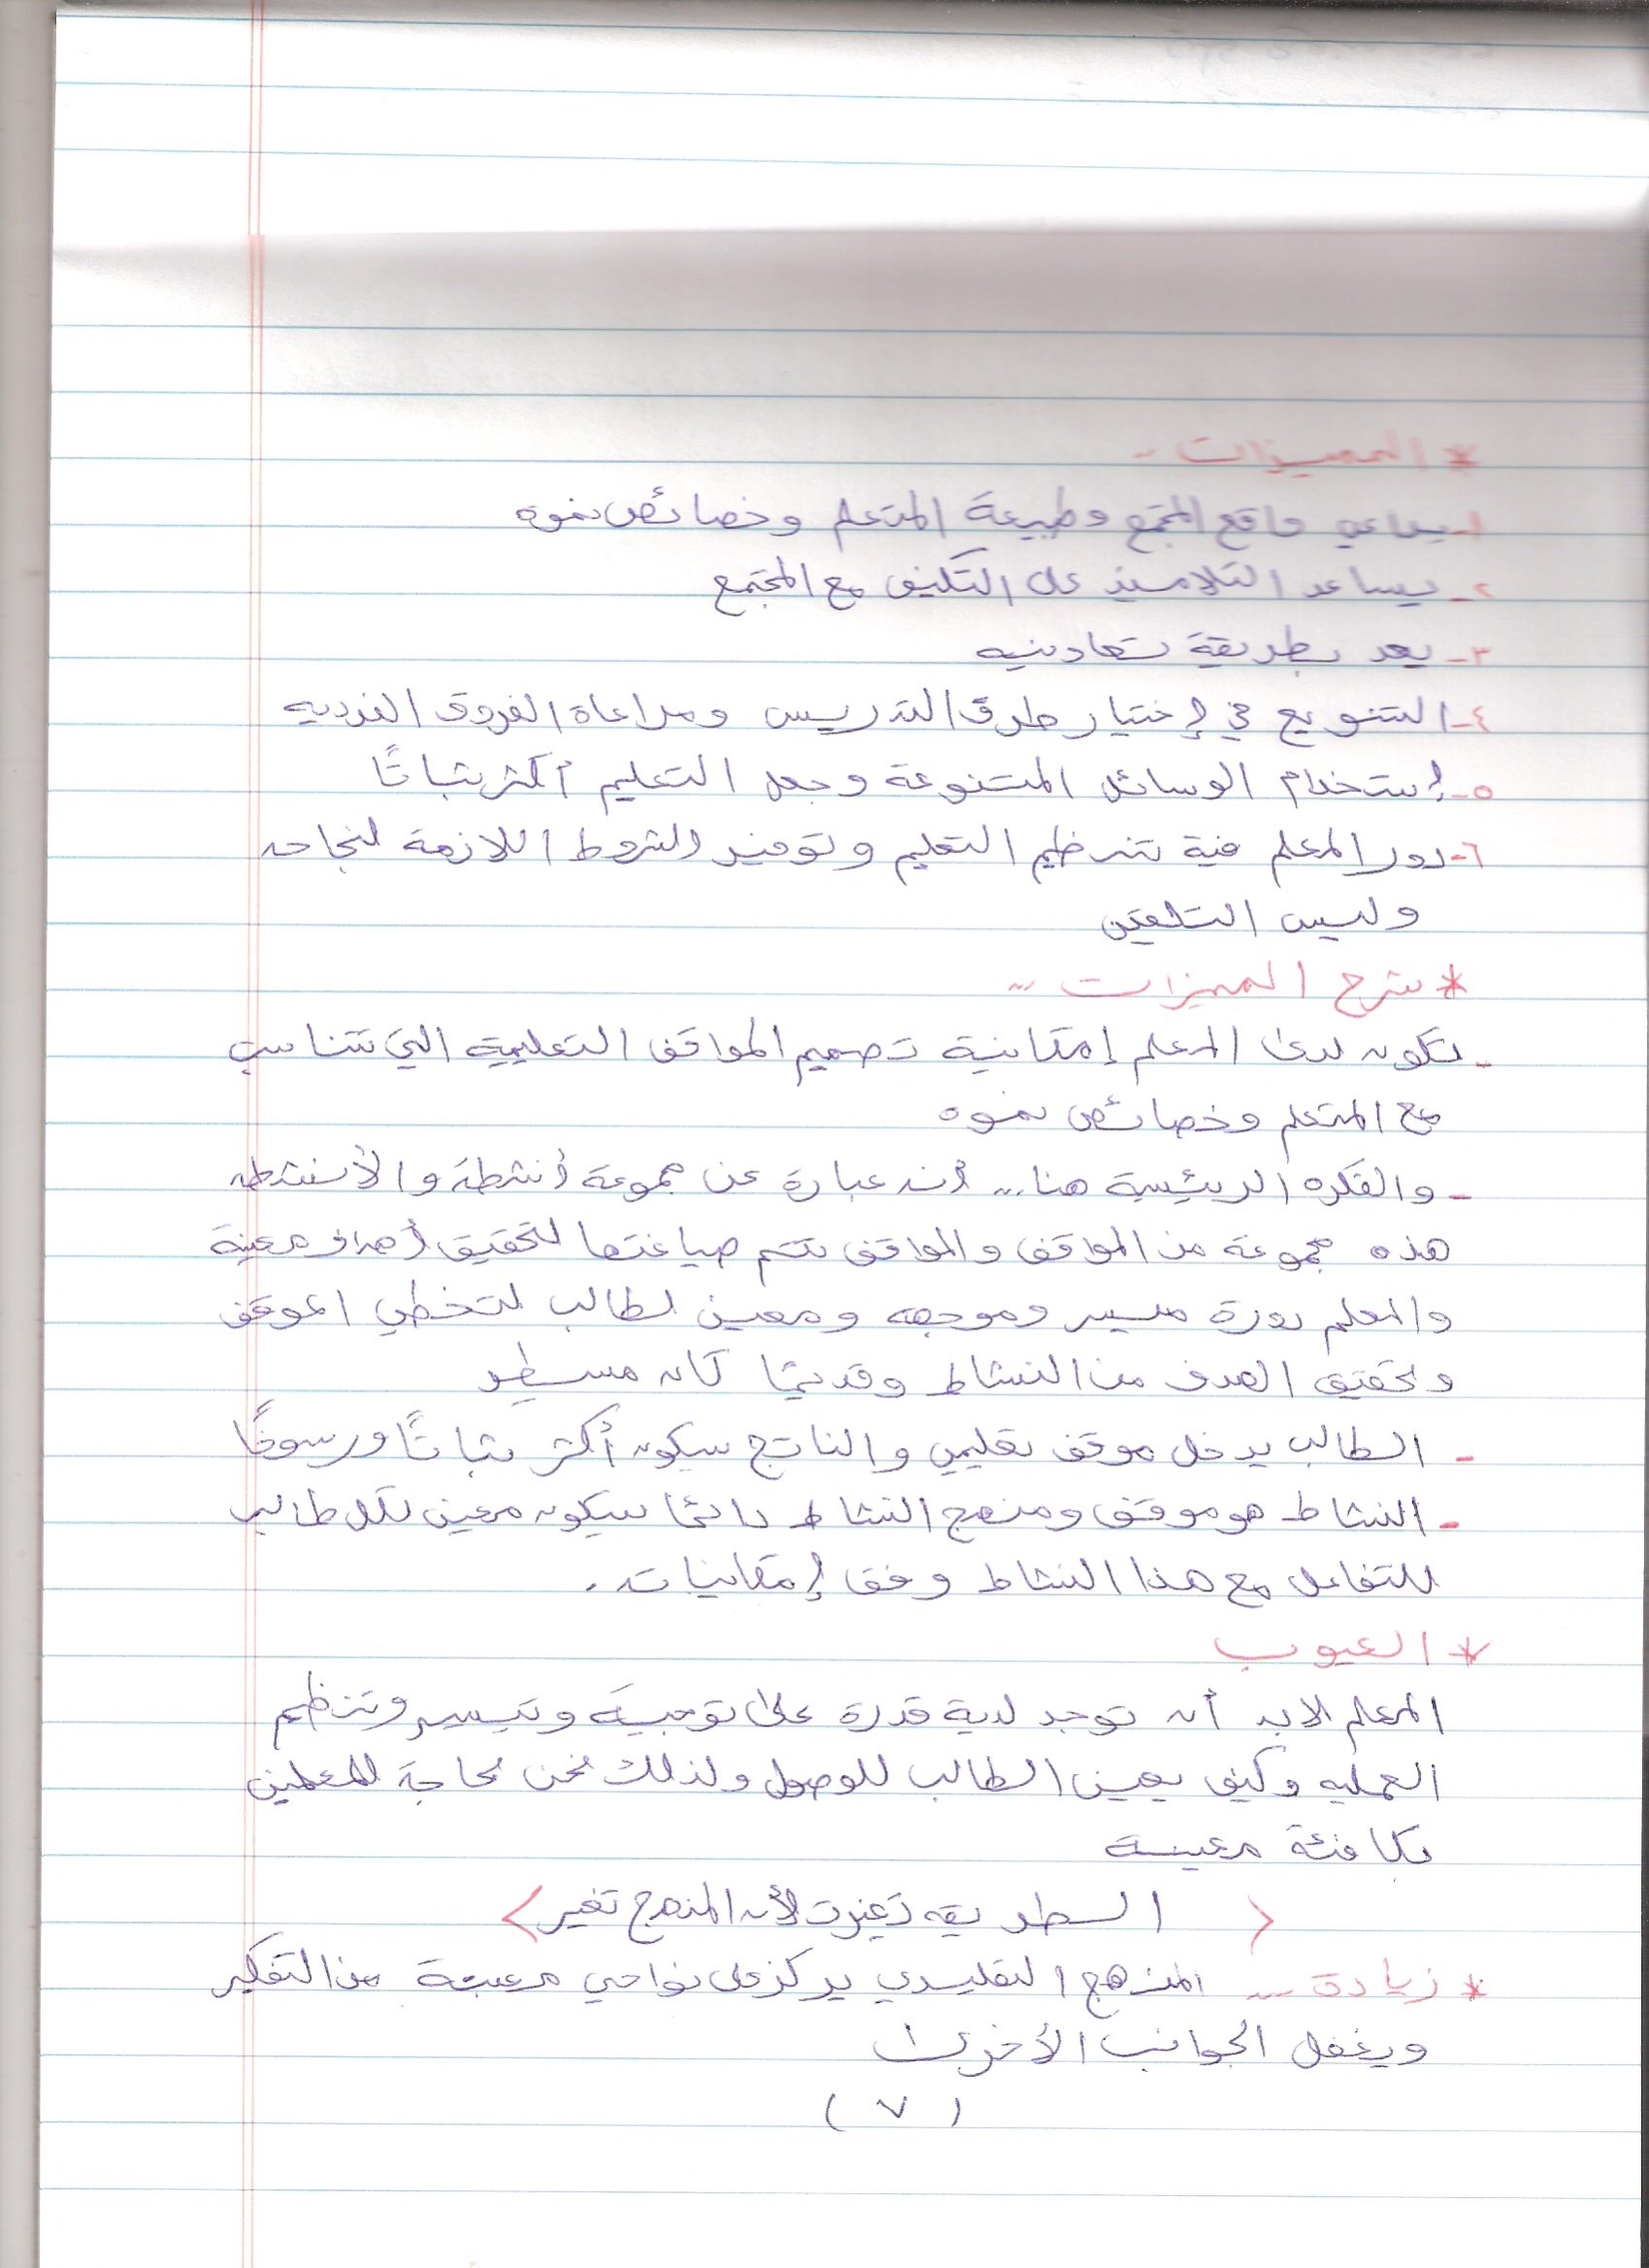 * المميزات -
١- يراعي واقع المجتمع وطبيعة المتعلم وخصائص نموه
٢- يساعد التلاميذ على التكيف مع المجتمع
٣- يعد بطريقة تعاونيه
٤- التنويع في إختيار طرق التدريس ومراعاة الفروق الفرديه
٥- إستخدام الوسائل المتنوعة وجعل التعليم أكثر ثباتًا
٦- دور المعلم فية تنظيم التعليم وتوفير الشروط اللازمة لنجاحه
وليس التلقين
* شرح المميزات ...
- تكون لدى المعلم إمكانية تصميم المواقف التعليمية التي تتناسب
مع المتعلم وخصائص نموه
- والفكره الرئيسية هنا ... أنه عبارة عن مجموعة أنشطة والأنشطه
هذه مجموعة من المواقف والمواقف تتم صياغتها لتحقيق أهداف معينة
والمعلم دورة ميسر وموجهه ومعين لطالب لتخطي الموقف
وتحقيق الهدف من النشاط وقديمًا كان مسيطر
- الطالب يدخل موقف تعليمي والناتج سيكون أكثر ثباتًا ورسوخًا
- النشاط هو موقف ومنهج النشاط دائمًا سيكون معين لكل طالب
للتفاعل مع هذا النشاط وفق إمكانيات.
* العيوب
المعلم لابد أن توجد لدية قدرة على توجيه وتيسير وتنظيم
العمليه وكيف يعين الطالب للوصول ولذلك نحن بحاجة للمعلمين
بكافئة معينة
< الطريقه تغيرت لأن المنهج تغير >
* زيادة ... المنهج التقليدي يركز على نواحي معينة من التفكير
ويغفل الجوانب الأخرى
(٧)